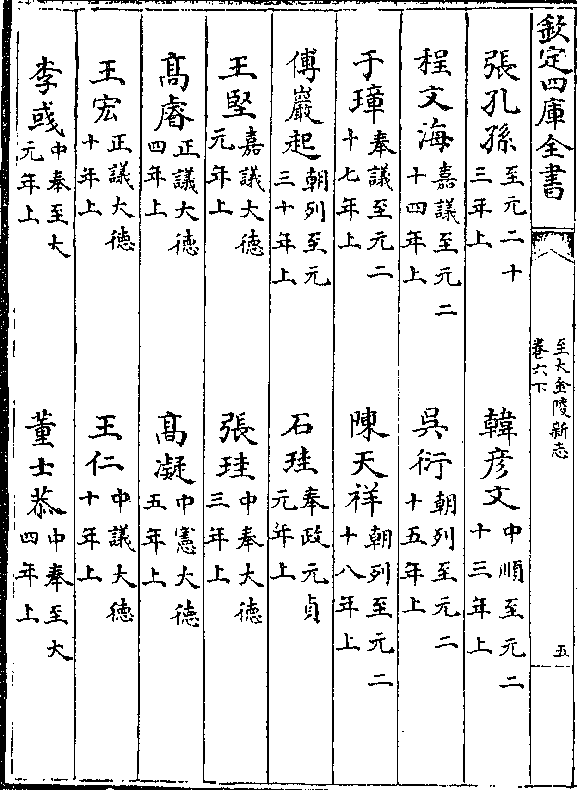 欽定四庫全書
至大金陵新志
卷六下
五
張孔孫至元二十三年上
韓彦文中順至元二十三年上
程文海嘉議至元二十四年上
吳衍朝列至元二十五年上
于璋奉議至元二十七年上
陳天祥朝列至元二十八年上
傅巖起朝列至元三十年上
石珪奉政元貞元年上
王堅嘉議大德元年上
張珪中奉大德三年上
髙睿正議大德四年上
髙凝中憲大德五年上
王宏正議大德十年上
王仁中議大德十年上
李彧中奉至大元年上
董士恭中奉至大四年上